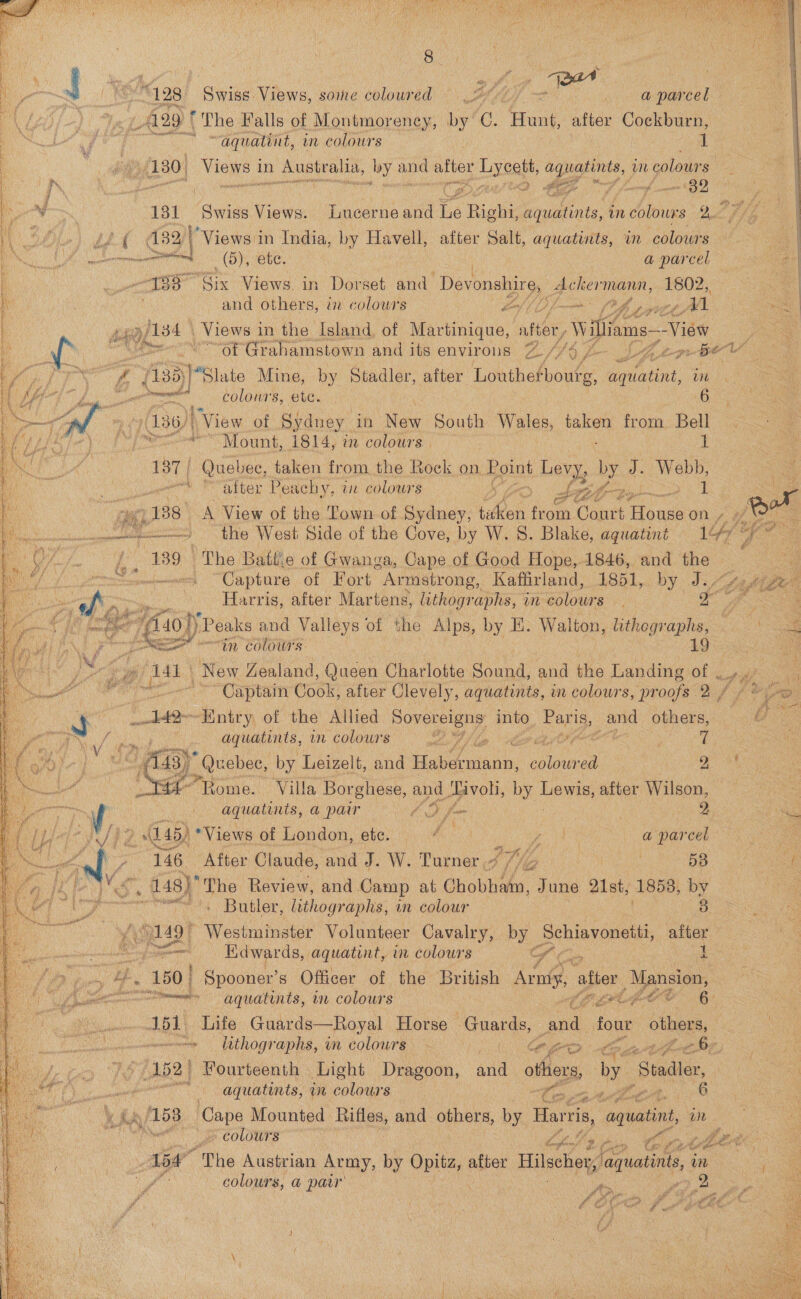 8
128 Swiss Views, some coloured a parcel
129 The Falls of Montmorency, by C. Hunt, after Cockburn,
aquatint, in colours 1
130 Views in Australia, by and after Lycett, aquatints, in colours
32
131 Swiss Views. Lucerne and Le Righi, aquatints, in colours 2
132 Views in India, by Havell, after Salt, aquatints, in colours
(5), etc. a parcel
133 Six Views in Dorset and Devonshire, Ackermann, 1802,
and others, in colours 11
134 Views in the Island of Martinique, after Williams—View
of Grahamstown and its environs
135 Slate Mine, by Stadler, after Loutherbourg, aquatint, in
colours, etc. 6
136 View of Sydney in New South Wales, taken from Bell
Mount, 1814, in colours 1
137 Quebec, taken from the Rock on Point Levy, by J. Webb,
after Peachy, in colours 1
138 A View of the Town of Sydney, taken from Court House on
the West Side of the Cove, by W. S. Blake, aquatint 1
139 The Battle of Gwanga, Cape of Good Hope, 1846, and the
Capture of Fort Armstrong, Kaffirland, 1851, by J.
Harris, after Martens, lithographs, in colours 2
140 Peaks and Valleys of the Alps, by E. Walton, lithographs,
in colours 19
141 New Zealand, Queen Charlotte Sound, and the Landing of
Captain Cook, after Clevely, aquatints, in colours, proofs 2
142 Entry of the Allied Sovereigns into Paris, and others,
aquatints, in colours 7
143 Quebec, by Leizelt, and Habermann, coloured 2
144 Rome. Villa Borghese, and Tivoli, by Lewis, after Wilson,
aquatints, a pair 2
145 Views of London, etc. a parcel
146 After Claude, and J. W. Turner 53
148 The Review, and Camp at Chobham, June 21st, 1853, by
Butler, lithographs, in colour 3
149 Westminster Volunteer Cavalry, by Schiavonetti, after
Edwards, aquatint, in colours 1
150 Spooner's Officer of the British Army, after Mansion,
aquatints, in colours 6
151 Life Guards—Royal Horse Guards, and four others,
lithographs, in colours 6
152 Fourteenth Light Dragoon, and others, by Stadler,
aquatints, in colours 6
153 Cape Mounted Rifles, and others, by Harris, aquatint, in
colours
154 The Austrian Army, by Opitz, after Hilscher, aquatints, in
colours, a pair 2